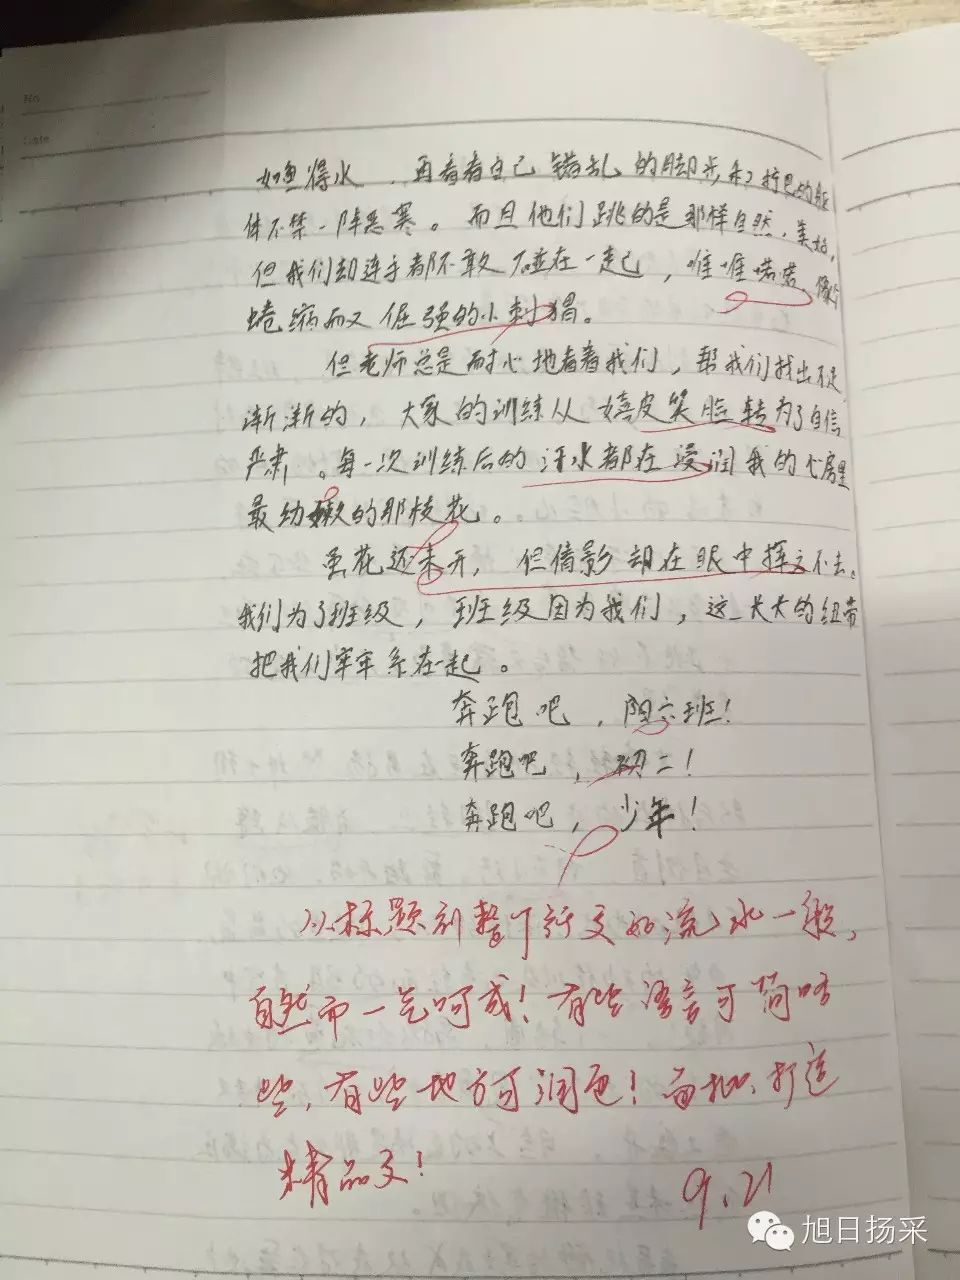 No
Date
如鱼得水，再看看自己错乱的脚步和拧巴的肢
体不禁一阵恶寒。而且他们跳的是那样自然，美好，
但我们却连手都不敢碰在一起，唯唯喏喏，像个
蜷缩而又倔强的小刺猬。
但老师总是耐心地看着我们，帮我们找出不足，
渐渐的，大家的训练从嬉皮笑脸转为了自信
严肃。每一次训练后的汗水都在浸润我的心房里
最幼嫩的那枝花。
虽花还未开，但倩影却在眼中挥之不去。
我们为了班级，班级因为我们，这一长长的纽带
把我们牢牢系在一起。
奔跑吧，阳六班！
奔跑吧，初二！
奔跑吧，少年！
从标题到整个行文如流水一般，
自然而一气呵成！有些语言可简洁
些，有些地方可润色！面批，打造
精品文！
9.21
旭日扬采